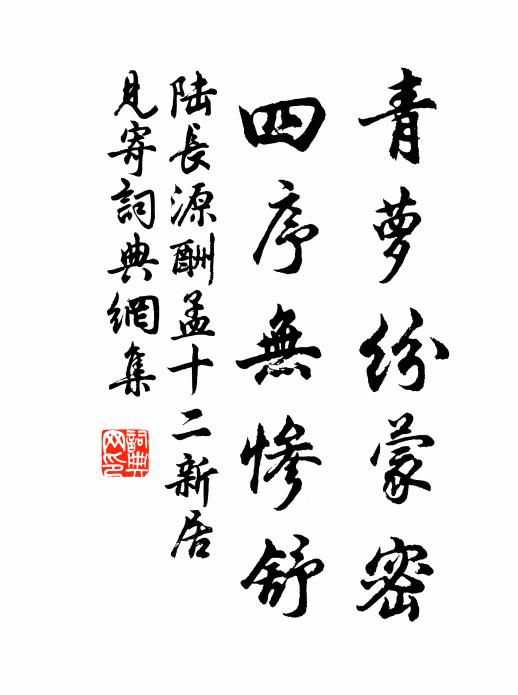 青萝纷蒙密
四序無慘舒
陸長源酬孟十二新居
見寄詞典網集
詞典网印